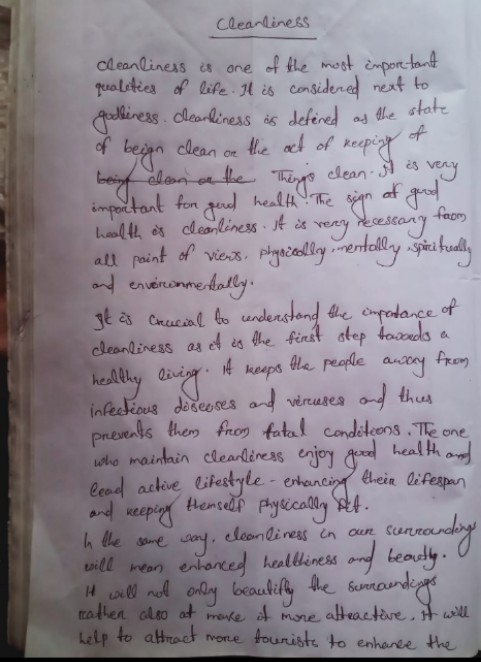 Cleanliness
Cleanliness is one of the most important
qualities of life. It is considered next to
godliness. Cleanliness is defined as the state
of beign clean or the act of keeping of
being clean or the Things clean. It is very
important for good health. The sign of good
health is cleanliness. It is very necessary from
all point of views, physically, mentally, spiritually
and environmentally.
It is crucial to understand the importance of
cleanliness as it is the first step towards a
healthy living. It keeps the people away from
infectious diseases and viruses and thus
prevents them from fatal conditions. The one
who maintain cleanliness enjoy good health and
lead active lifestyle - enhancing their lifespan
and keeping themself physically fit.
In the same way, cleanliness in our surrounding
will mean enhanced healthiness and beauty.
It will not only beautifly the surroundings
rather also at make it more attractive. It will
help to attract more tourists to enhance the